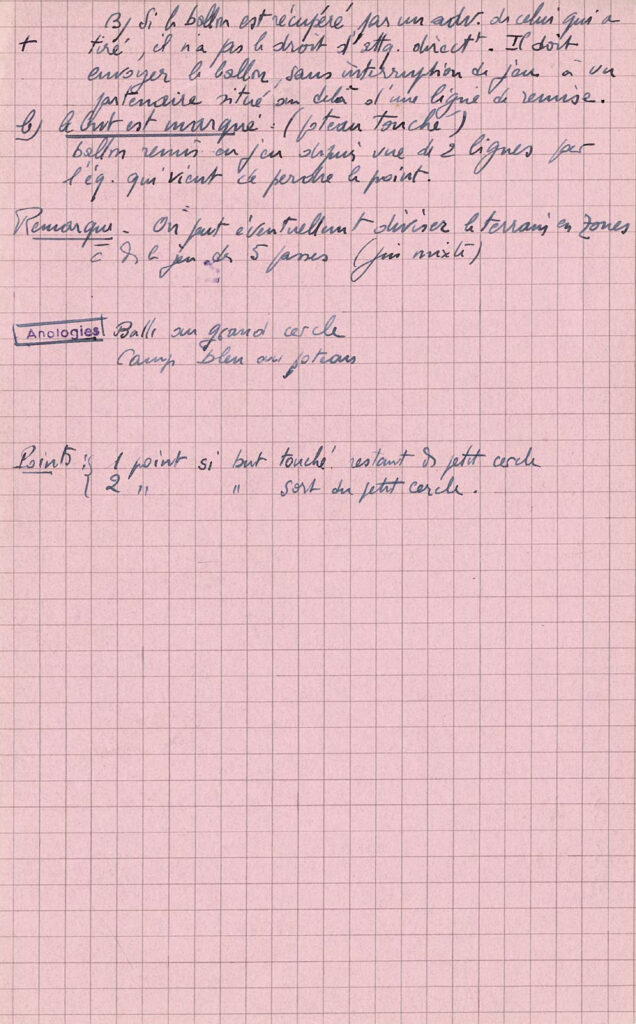 B) Si le ballon est récupéré par un adv. de celui qui a
+ tiré, il n'a pas le droit d'attq. directt. Il doit
envoyer le ballon, sans interruption de jeu à un
partenaire situé au delà d'une ligne de remise.
b) le but est marqué : (poteau touché)
ballon remis en jeu depuis une de 2 lignes par
l'éq. qui vient de perdre le point.
Remarque - On peut éventuellement diviser le terrain en zones
c ds le jeu des 5 passes (jeu mixte)
Analogies Balle au grand cercle
Camp bleu aux poteaux
Points : { 1 point si but touché restant ds petit cercle
{ 2 " " sort du petit cercle.